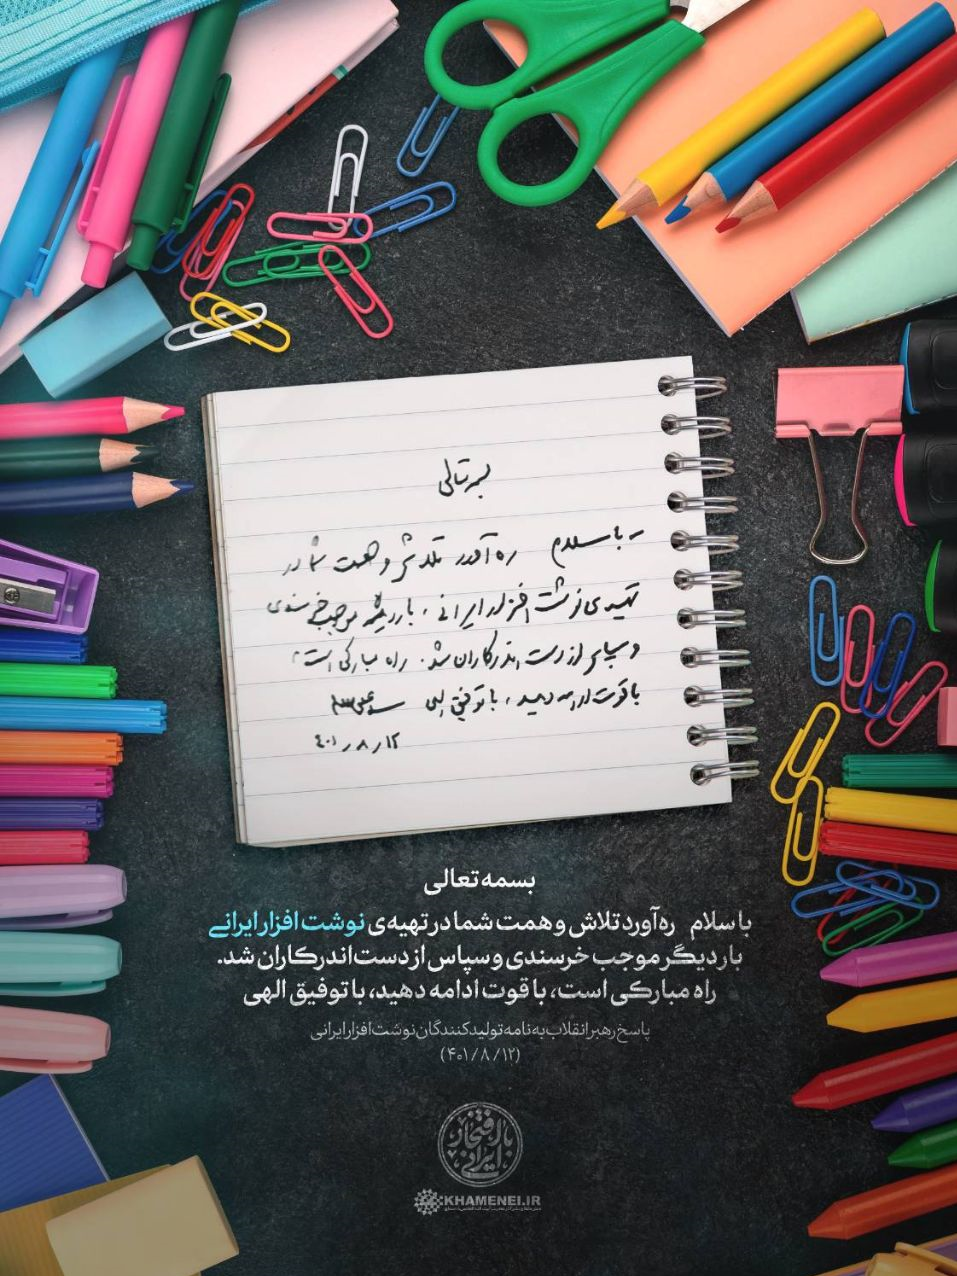 بسمه‌تعالی
ـ با سلام ره‌آورد تلاش و همت شما در
تهیه‌ی نوشت‌افزار ایرانی، بار دیگر موجب خرسندی
و سپاس از دست‌اندرکاران شد. راه مبارکی است،
با قوت ادامه دهید، با توفیق الهی
۴۰۱٫۸٫۱۲
بسمه تعالی
با سلام ره‌آورد تلاش و همت شما در تهیه‌ی نوشت افزار ایرانی
بار دیگر موجب خرسندی و سپاس از دست‌اندرکاران شد.
راه مبارکی است، با قوت ادامه دهید، با توفیق الهی
پاسخ رهبر انقلاب به نامه تولیدکنندگان نوشت‌افزار ایرانی
(۴۰۱/۸/۱۲)
با افتخار ایرانی
KHAMENEI.IR